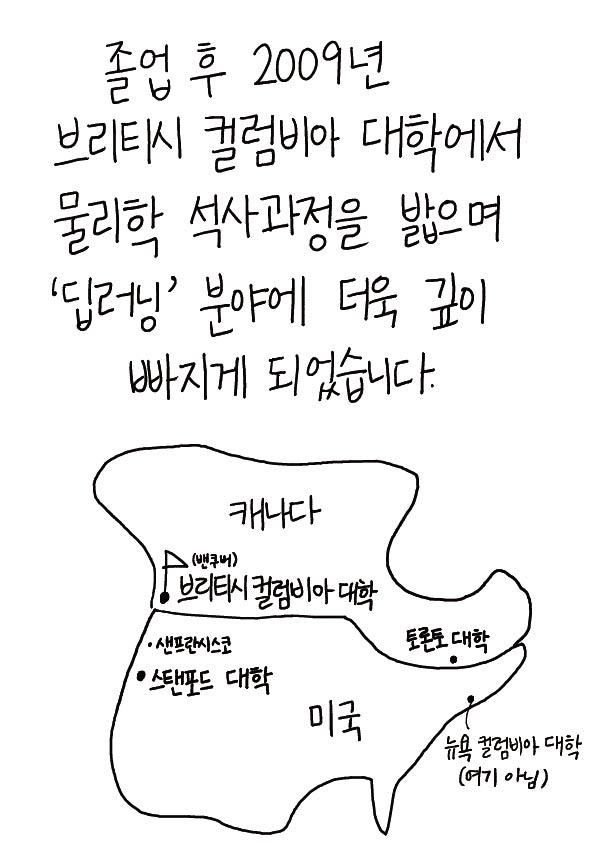 졸업 후 2009년
브리티시 컬럼비아 대학에서
물리학 석사과정을 밟으며
‘딥러닝’ 분야에 더욱 깊이
빠지게 되었습니다.
캐나다
(밴쿠버)
브리티시 컬럼비아 대학
토론토 대학
샌프란시스코
스탠포드 대학
미국
뉴욕 컬럼비아 대학
(여기 아님)